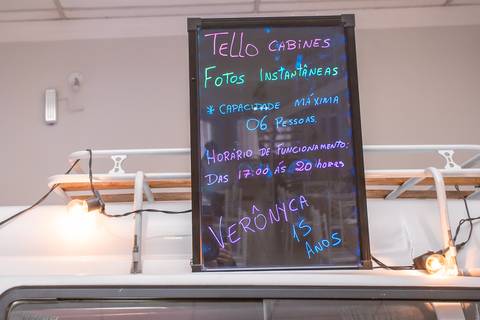 TELLO CABINES
FOTOS INSTANTÂNEAS
* CAPACIDADE MÁXIMA
06 PESSOAS.
HORÁRIO DE FUNCIONAMENTO:
DAS 17:00 ÁS 20 HORES
VERÔNYCA
15
ANOS